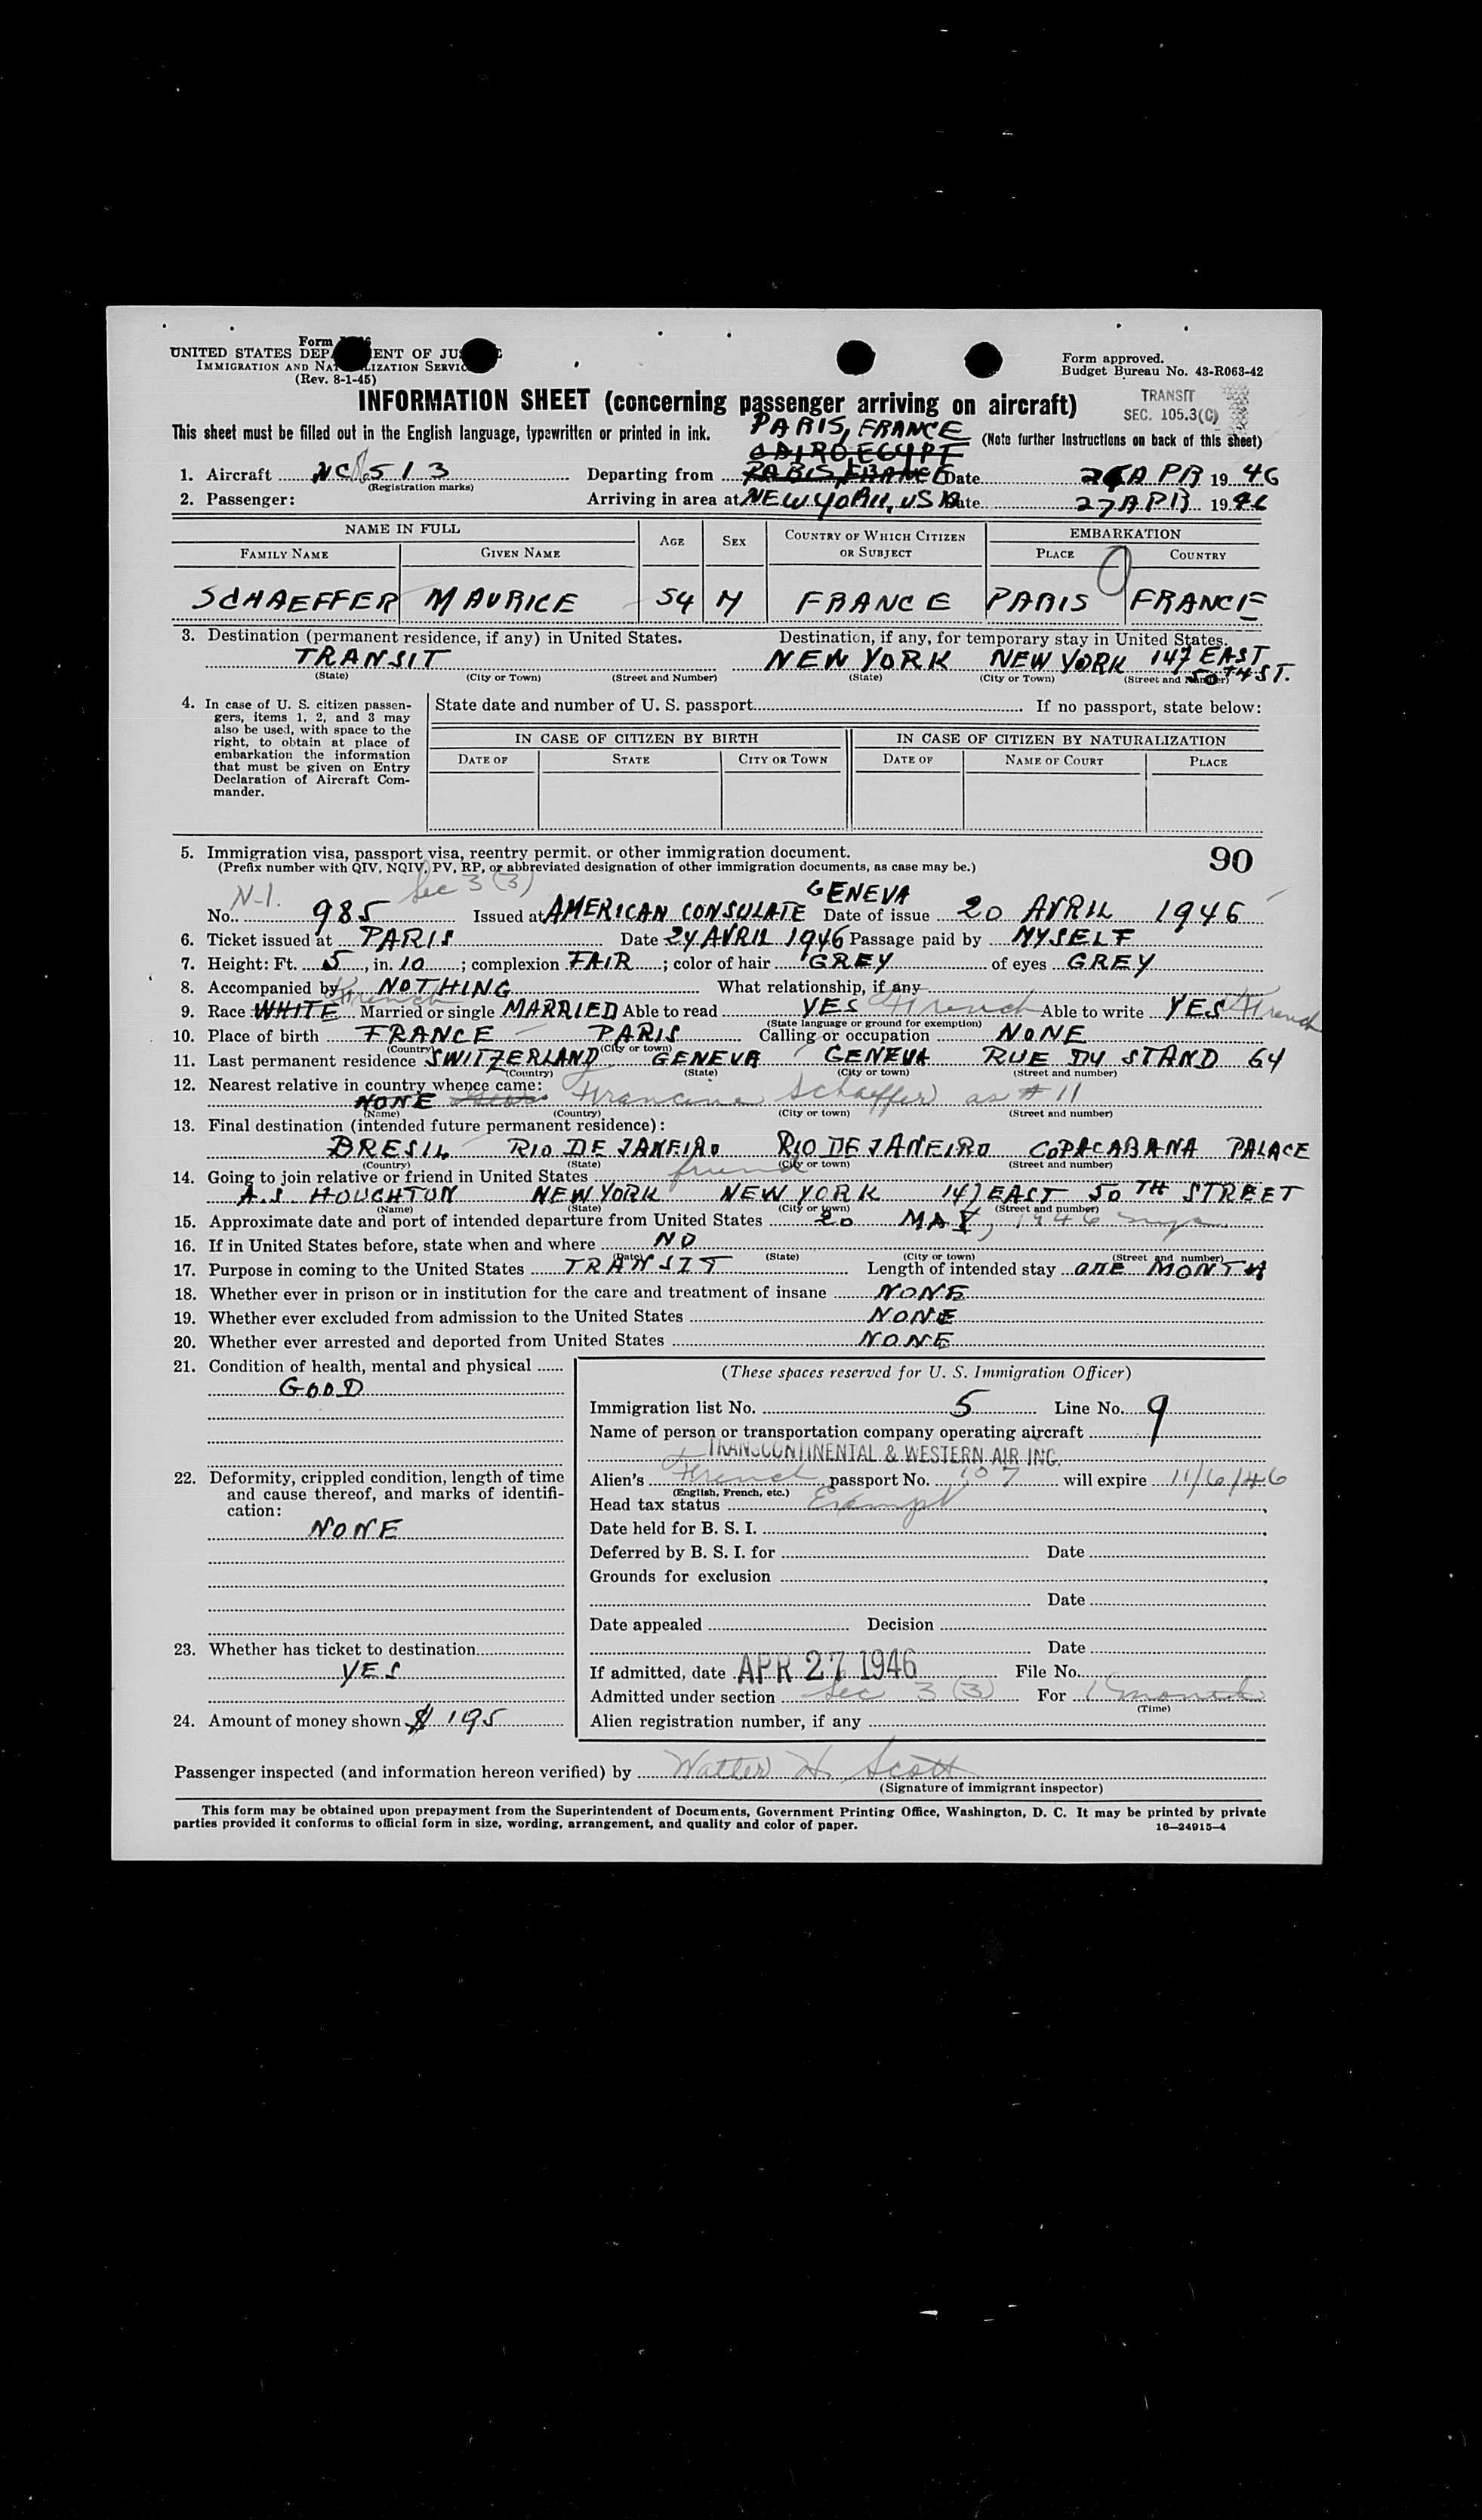 Form
UNITED STATES DEP ENT OF JUS
IMMIGRATION AND NAT LIZATION SERVIC
(Rev. 8-1-45)
Form approved.
Budget Bureau No. 43-R063-42
INFORMATION SHEET (concerning passenger arriving on aircraft)
TRANSIT
SEC. 105.3(C)
This sheet must be filled out in the English language, typewritten or printed in ink. PARIS, FRANCE (Note further instructions on back of this sheet)
CAIRO EGYPT
1. Aircraft NC 513 Departing from PARIS, FRANCE Date APR 19 46
(Registration marks)
2. Passenger: Arriving in area at NEW YORK, USA Date 27 APR 19 46
NAME IN FULL AGE SEX COUNTRY OF WHICH CITIZEN OR SUBJECT EMBARKATION
FAMILY NAME GIVEN NAME PLACE COUNTRY
SCHAEFFER MAURICE 54 M FRANCE PARIS FRANCE
3. Destination (permanent residence, if any) in United States. Destination, if any, for temporary stay in United States.
TRANSIT NEW YORK NEW YORK 147 EAST 50TH ST.
(State) (City or Town) (Street and Number) (State) (City or Town) (Street and Number)
4. In case of U. S. citizen passen-
gers, items 1, 2, and 3 may
also be used, with space to the
right, to obtain at place of
embarkation the information
that must be given on Entry
Declaration of Aircraft Com-
mander.
State date and number of U. S. passport If no passport, state below:
IN CASE OF CITIZEN BY BIRTH IN CASE OF CITIZEN BY NATURALIZATION
DATE OF STATE CITY OR TOWN DATE OF NAME OF COURT PLACE
5. Immigration visa, passport visa, reentry permit, or other immigration document. 90
(Prefix number with QIV, NQIV, PV, RP, or abbreviated designation of other immigration documents, as case may be.)
N-1. Sec 3 (3) GENEVA
No. 985 Issued at AMERICAN CONSULATE Date of issue 20 AVRIL 1946
6. Ticket issued at PARIS Date 24 AVRIL 1946 Passage paid by MYSELF
7. Height: Ft. 5, in. 10; complexion FAIR; color of hair GREY of eyes GREY
8. Accompanied by NOTHING What relationship, if any
French
9. Race WHITE Married or single MARRIED Able to read YES French Able to write YES French
(State language or ground for exemption)
10. Place of birth FRANCE PARIS Calling or occupation NONE
(Country) (City or town)
11. Last permanent residence SWITZERLAND GENEVA GENEVA RUE DU STAND 64
(Country) (State) (City or town) (Street and number)
12. Nearest relative in country whence came:
NONE Francine Schaeffer as #11
(Name) (Country) (City or town) (Street and number)
13. Final destination (intended future permanent residence):
BRESIL RIO DE JANEIRO RIO DE JANEIRO COPACABANA PALACE
(Country) (State) (City or town) (Street and number)
14. Going to join relative or friend in United States friend
A.S HOUGHTON NEW YORK NEW YORK 147 EAST 50TH STREET
(Name) (State) (City or town) (Street and number)
15. Approximate date and port of intended departure from United States 20 MAY, 1946 nyc
16. If in United States before, state when and where NO
(Date) (State) (City or town) (Street and number)
17. Purpose in coming to the United States TRANSIT Length of intended stay ONE MONTH
18. Whether ever in prison or in institution for the care and treatment of insane NONE
19. Whether ever excluded from admission to the United States NONE
20. Whether ever arrested and deported from United States NONE
21. Condition of health, mental and physical
GOOD
22. Deformity, crippled condition, length of time
and cause thereof, and marks of identifi-
cation:
NONE
23. Whether has ticket to destination
YES
24. Amount of money shown $195
(These spaces reserved for U. S. Immigration Officer)
Immigration list No. 5 Line No. 9
Name of person or transportation company operating aircraft
TRANSCONTINENTAL & WESTERN AIR INC.
Alien's French passport No. 107 will expire 11/6/46
(English, French, etc.)
Head tax status Exempt
Date held for B. S. I.
Deferred by B. S. I. for Date
Grounds for exclusion
Date
Date appealed Decision
Date
If admitted, date APR 27 1946 File No.
Admitted under section Sec 3 (3) For 1 month
(Time)
Alien registration number, if any
Passenger inspected (and information hereon verified) by Walter H Scott
(Signature of immigrant inspector)
This form may be obtained upon prepayment from the Superintendent of Documents, Government Printing Office, Washington, D. C. It may be printed by private
parties provided it conforms to official form in size, wording, arrangement, and quality and color of paper. 16—24915-4